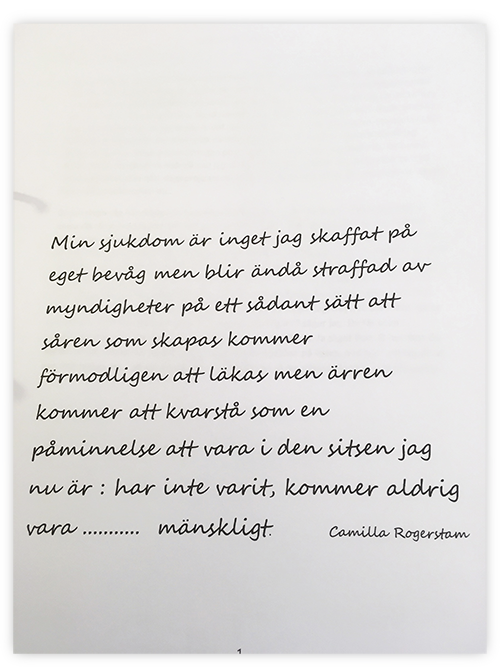 Min sjukdom är inget jag skaffat på
eget bevåg men blir ändå straffad av
myndigheter på ett sådant sätt att
såren som skapas kommer
förmodligen att läkas men ärren
kommer att kvarstå som en
påminnelse att vara i den sitsen jag
nu är : har inte varit, kommer aldrig
vara ........... mänskligt.
Camilla Rogerstam
1